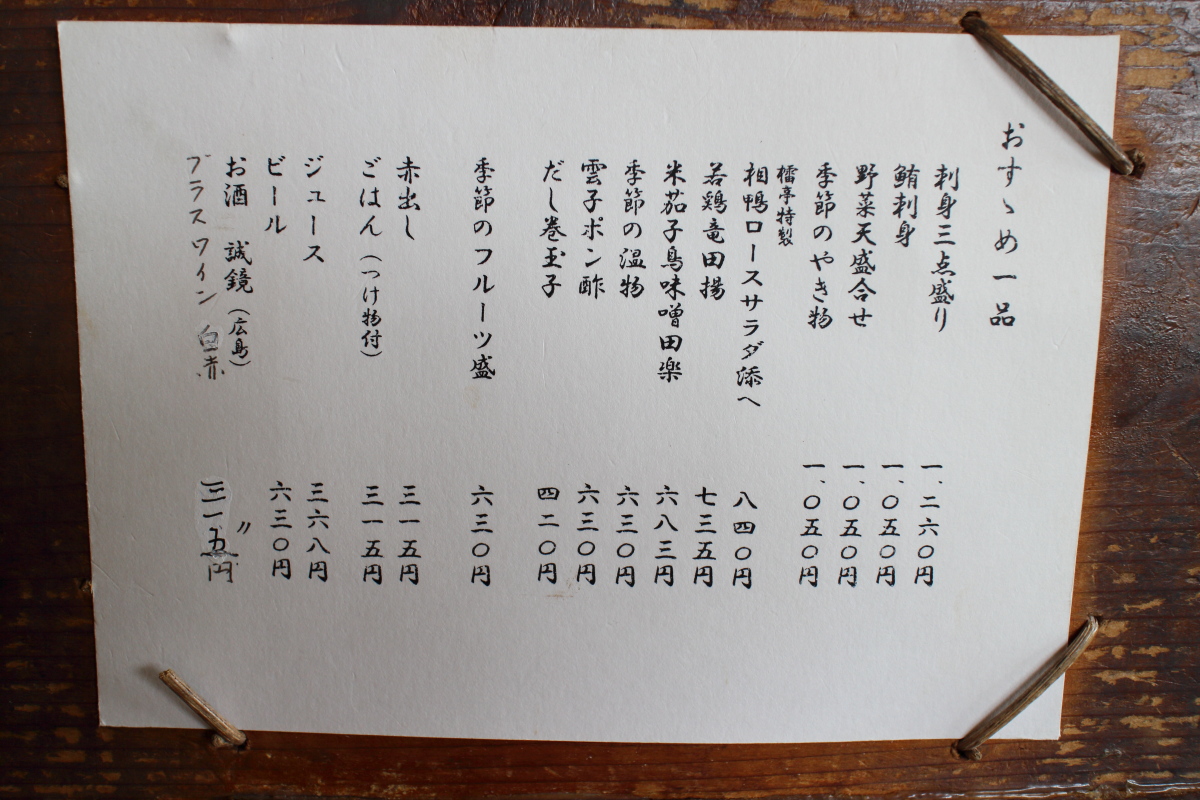 おすゝめ一品
刺身三点盛り 一、二六〇円
鮪刺身 一、〇五〇円
野菜天盛合せ 一、〇五〇円
季節のやき物 一、〇五〇円
櫺亭特製
相鴨ロースサラダ添へ 八四〇円
若鶏竜田揚 七三五円
米茄子鳥味噌田楽 六八三円
季節の温物 六三〇円
雲子ポン酢 六三〇円
だし巻玉子 四二〇円
季節のフルーツ盛 六三〇円
赤出し 三一五円
ごはん(つけ物付) 三一五円
ジュース 三六八円
ビール 六三〇円
お酒 誠鏡(広島) 〃
グラスワイン 白赤 三一五円